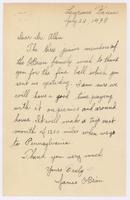 July 22, 1938
Dear Mr. Allen
The three junior members of
the O'Brien family want to thank
you for the fine ball which you
sent us yesterday. I am sure we
will have a good time playing
with it on pioneers and around
home. It will make a top next
month of 1200 miles when we go to
Pennsylvania.
Thank you very much
Yours truly
James O'Brien